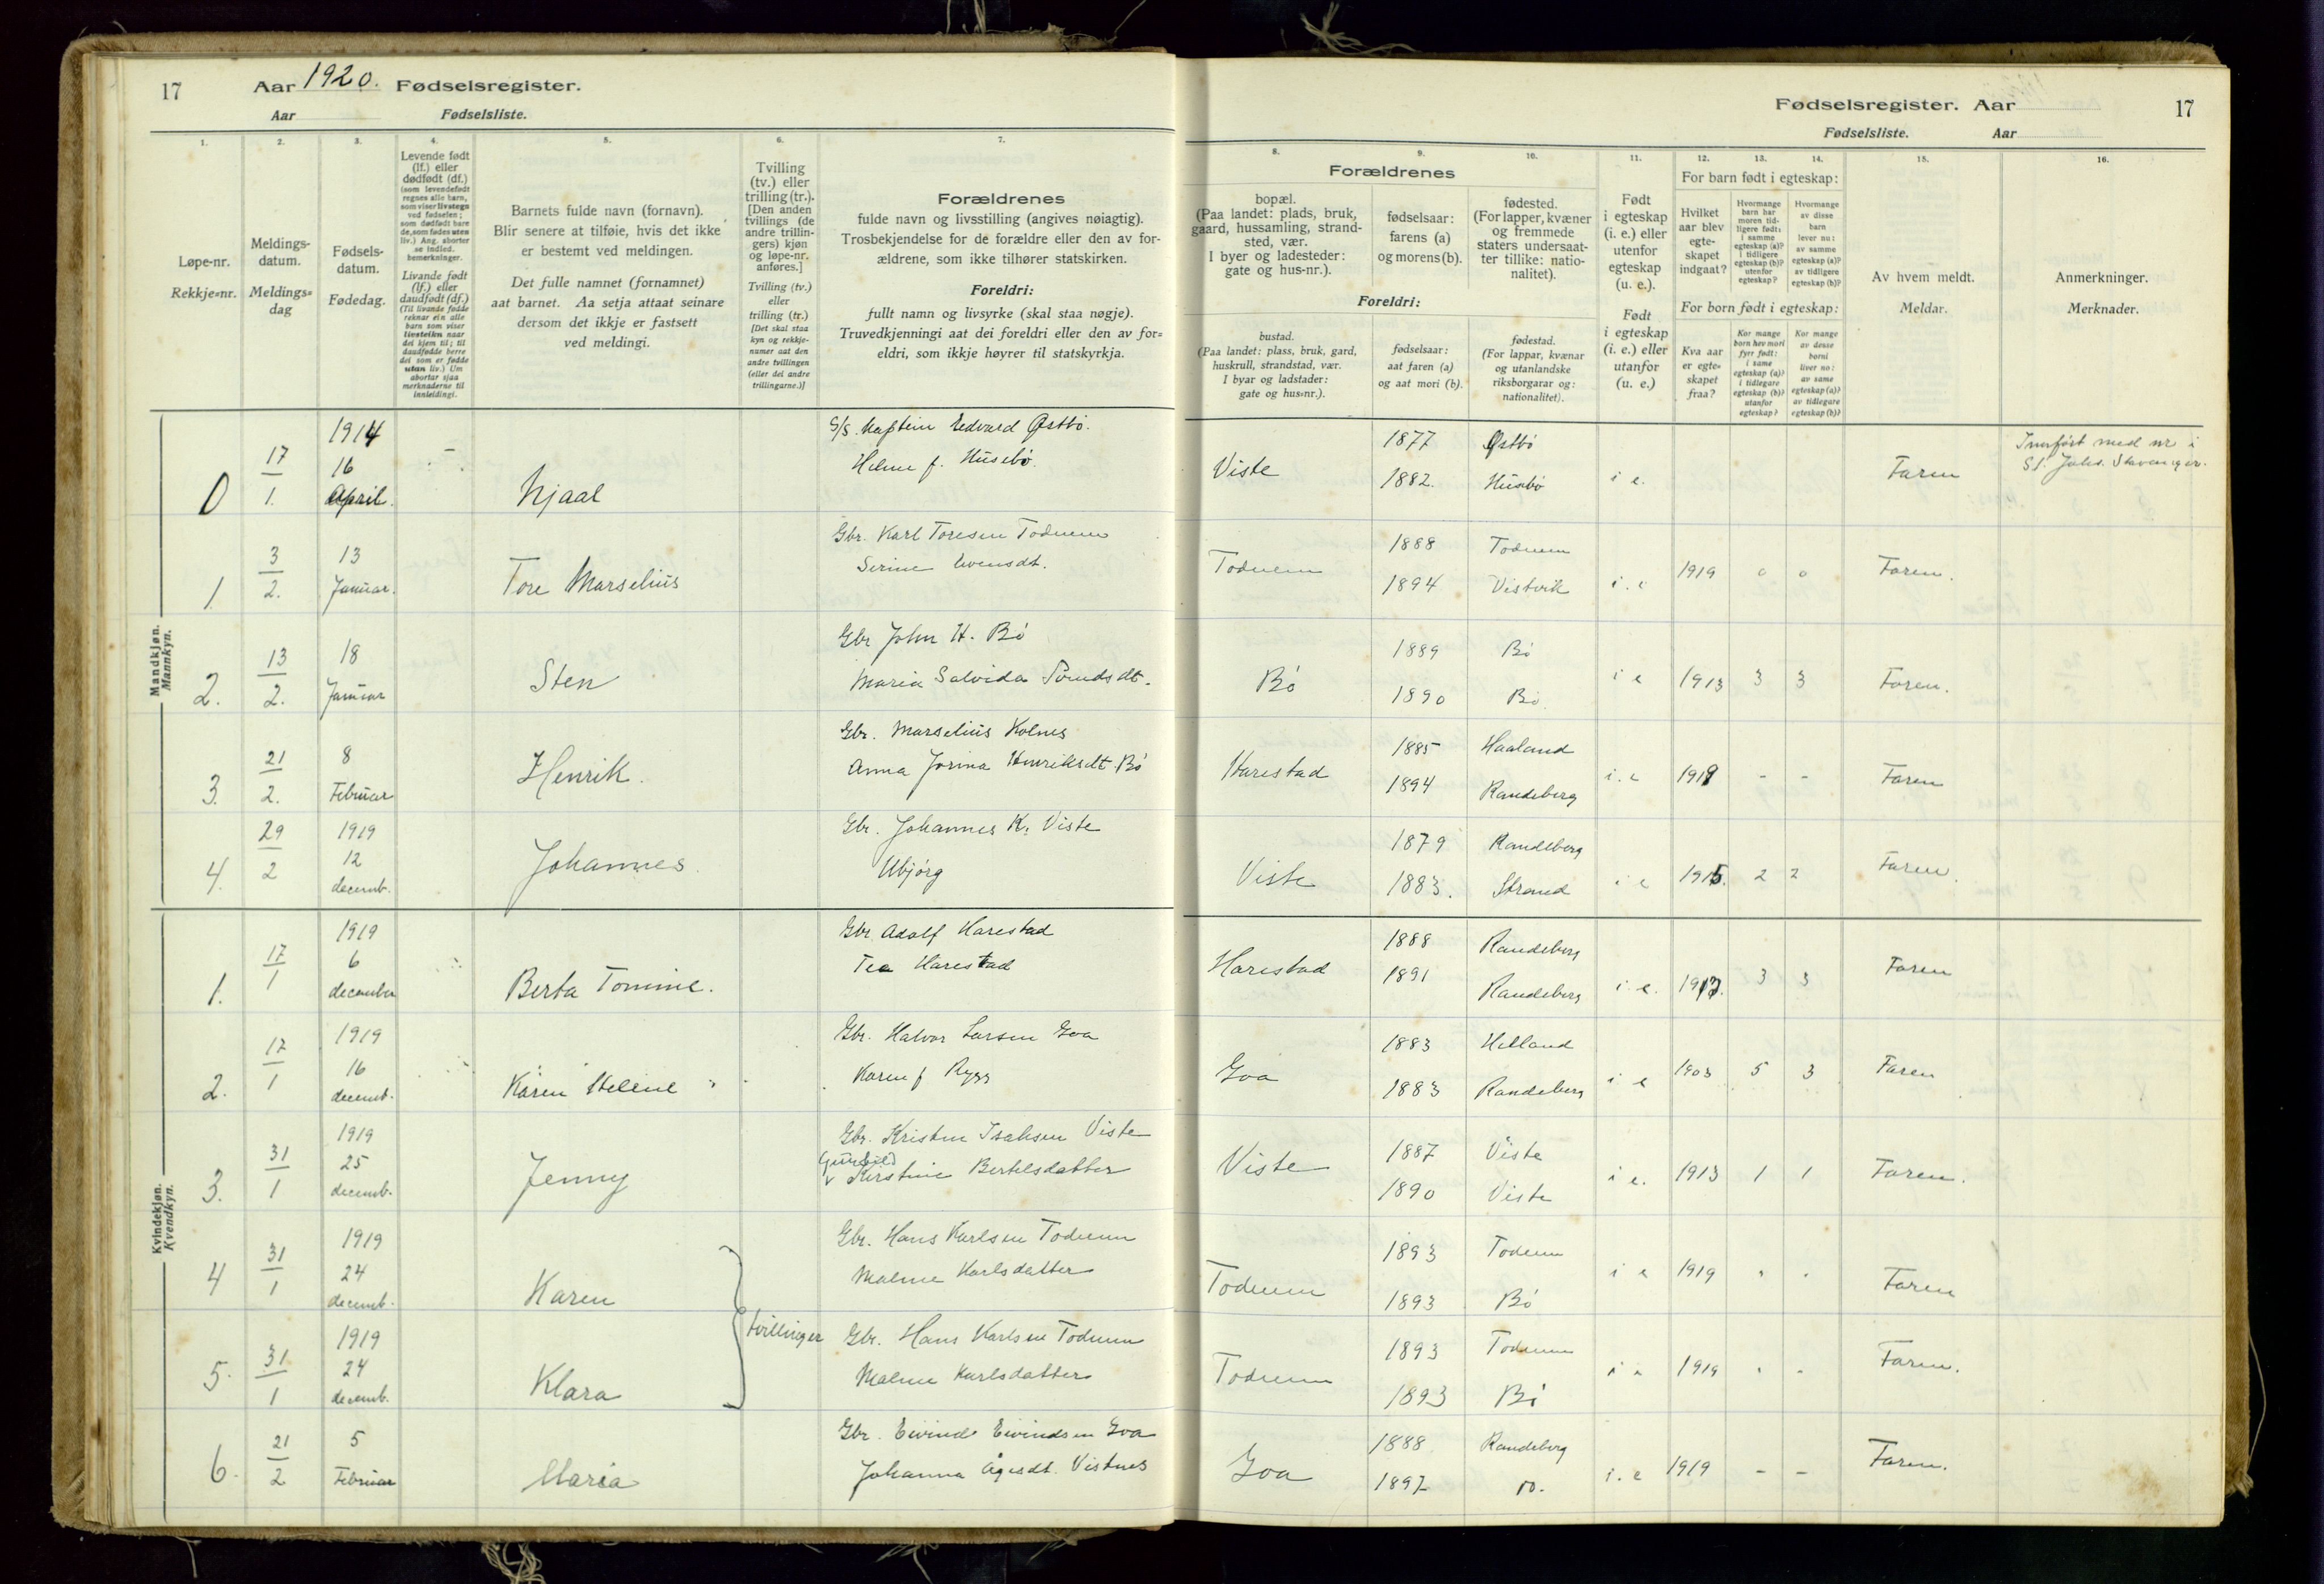 17 Aar 1920. Fødselsregister.
Aar Fødselsliste.
1. 2. 3. 4. 5. 6. 7.
Løpe-nr.
Rekkje-nr.
Meldings-
datum.
Meldings-
dag
Fødsels-
datum.
Fødedag.
Levende født
(lf.) eller
dødfødt (df.)
(som levendefødt
regnes alle barn,
som viser livstegn
ved fødselen;
som dødfødt bare
de, som fødes uten
liv.) Ang. aborter
se indled.
bemerkninger.
Livande fødd
(lf.) eller
daudfødt (df.)
(Til livande fødde
reknar ein alle
barn som viser
livsteikn naar
dei kjem til; til
daudfødde berre
dei som er fødde
utan liv.) Um
abortar sjaa
merknaderne til
innleidingi.
Barnets fulde navn (fornavn).
Blir senere at tilføie, hvis det ikke
er bestemt ved meldingen.
Det fulle namnet (fornamnet)
aat barnet. Aa setja attaat seinare
dersom det ikkje er fastsett
ved meldingi.
Tvilling
(tv.) eller
trilling (tr.).
[Den anden
tvillings (de
andre trillin-
gers) kjøn
og løpe-nr.
anføres.]
Tvilling (tv.)
eller
trilling (tr.)
[Det skal staa
kyn og rekkje-
numer aat den
andre tvillingen
(eller dei andre
trillingarne.)]
Forældrenes
fulde navn og livsstilling (angives nøiagtig).
Trosbekjendelse for de forældre eller den av for-
ældrene, som ikke tilhører statskirken.
Foreldri:
fullt namn og livsyrke (skal staa nøgje).
Truvedkjenningi aat dei foreldri eller den av for-
eldri, som ikkje høyrer til statskyrkja.
Mandkjøn.
Mannkyn.
0 17/1. 1914 16 April. Njaal
S/S. Kaptein Edvard Østbö.
Helene f. Husebö
1. 3/2. 13 Januar. Tore Marselius
Gbr. Karl Toresen Todnem
Serine Evensdt.
2. 13/2. 18 Januar Sten
Gbr John H. Bö
Maria Salvida
3. 21/2. 8 Februar Henrik.
Gbr. Marselius Kolnes
Anna Jorina Henriksdt. Bö
4. 29/2 1919 12 decemb. Johannes.
Gbr. Johannes K. Viste
Ubjörg
Kvindekjøn.
Kvendkyn.
1. 17/1 1919 6 december Berta Tomine.
Gbr. Adolf Harestad
Tea Harestad
2. 17/1 1919 16 decemb. Karen Helene
Gbr. Halvor Larsen Goa
Karen f Rygg
3. 31/1 1919 25 decemb. Jenny
Gbr. Kristen Isaksen Viste
Gunhild
Kirstine Bertelsdatter
4 31/1 1919 24 decemb. Karen
Gbr. Hans Karlsen Todnem
Malene Karlsdatter
tvillinger
5. 31/1 1919 24 decemb. Klara
Gbr. Hans Karlsen Todnem
Malene Karlsdatter
6. 21/2 5 Februar Maria
Gbr. Eivind Eivindsen Goa
Johanna Ågesdt. Vistnes
Fødselsregister. Aar 17
Fødselsliste. Aar
8. 9. 10. 11. 12. 13. 14. 15. 16.
Forældrenes
bopæl.
(Paa landet: plads, bruk,
gaard, hussamling, strand-
sted, vær.
I byer og ladesteder:
gate og hus-nr.).
fødselsaar:
farens (a)
og morens (b).
fødested.
(For lapper, kvæner
og fremmede
staters undersaat-
ter tillike: natio-
nalitet).
Foreldri:
bustad.
(Paa landet: plass, bruk, gard,
huskrull, strandstad, vær.
I byar og ladstader:
gate og hus-nr.).
fødselsaar:
aat faren (a)
og aat mori (b).
fødestad.
(For lappar, kvænar
og utanlandske
riksborgarar og:
nationalitet).
Født
i egteskap
(i. e.) eller
utenfor
egteskap
(u. e.).
Født
i egteskap
(i. e.) eller
utanfor
(u. e.)
For barn født i egteskap:
Hvilket
aar blev
egte-
skapet
indgaat?
Hvormange
barn har
moren tid-
ligere født:
i samme
egteskap (a)?
i tidligere
egteskap (b)?
utenfor
egteskap?
Hvormange
av disse
barn
lever nu:
av samme
egteskap (a)?
av tidligere
egteskap (b)?
For born født i egteskap:
Kva aar
er egte-
skapet
fraa?
Kor mange
born hev mori
fyrr født:
i same
egteskap (a)?
i tidlegare
egteskap (b)?
utanfor
egteskap?
Kor mange
av desse
borni
liver no:
av same
egteskap (a)?
av tidlegare
egteskap (b)?
Av hvem meldt.
Meldar.
Anmerkninger.
Merknader.
Viste 1877 Østbö
1882. Husebö i e. Faren
Innført med nr i
St. Johs. Stavanger.
Todnem 1888 Todnem
1894 Vistvik i. e 1919 0 0 Faren.
Bö 1889 Bö
1890 Bö i e 1913 3 3 Faren.
Harestad 1885 Haaland
1894 Randeberg i. e 1919 - - Faren
Viste 1879 Randeberg
1883. Strand i e 1915. 2 2 Faren.
Harestad 1888 Randeberg
1891 Randeberg i. e. 1912. 3 3 Faren
Goa 1883 Helland
1883 Randeberg i e 1903 5 3 Faren
Viste 1887 Viste
1890 Viste i e. 1913 1 1 Faren.
Todnem 1893 Todnem
1893 Bö i e 1919 Faren
Todnem 1893 Todnem
1893 Bö i e 1919 Faren.
Goa 1888 Randeberg
1897 Do. i. e 1919 - - Faren.